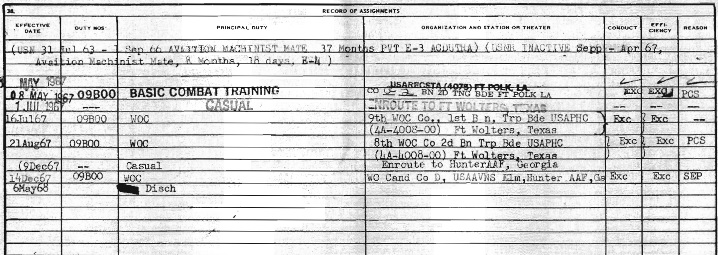 38. RECORD OF ASSIGNMENTS
EFFECTIVE DATE DUTY MOS PRINCIPAL DUTY ORGANIZATION AND STATION OR THEATER CONDUCT EFFI- CIENCY REASON
(USN 31 Jul 63 - Sep 66 AVAITION MACHINIST MATE 37 Months PVT E-3 ACDUTRA) (USNR INACTIVE Sepp - Apr 67,
Aveition Machinist Mate, 8 Months, 18 days, E-4 )
MAY 1967 USARECSTA (4079) FT POLK, LA
08 MAY 1967 09B00 BASIC COMBAT TRAINING CO BN 2D TNG BDE FT POLK LA EXC EXC PCS
1 JUL 1967 -- CASUAL ENROUTE TO FT WOLTERS, TEXAS -- --
16Jul67 09B00 WOC 9th WOC Co., 1st B n, Trp Bde USAPHC Exc Exc --
(4A-4008-00) Ft Wolters, Texas
21Aug67 09B00 WOC 8th WOC Co 2d Bn Trp Bde USAPHC Exc Exc PCS
(4A-4008-00) Ft Wolters, Texas
(9Dec67 -- Casual Enroute to HunterAAF, Georgia
14Dec67 09B00 WOC WO Cand Co D, USAAVNS Elm,Hunter AAF,Ga Exc Exc SEP
6May68 Disch